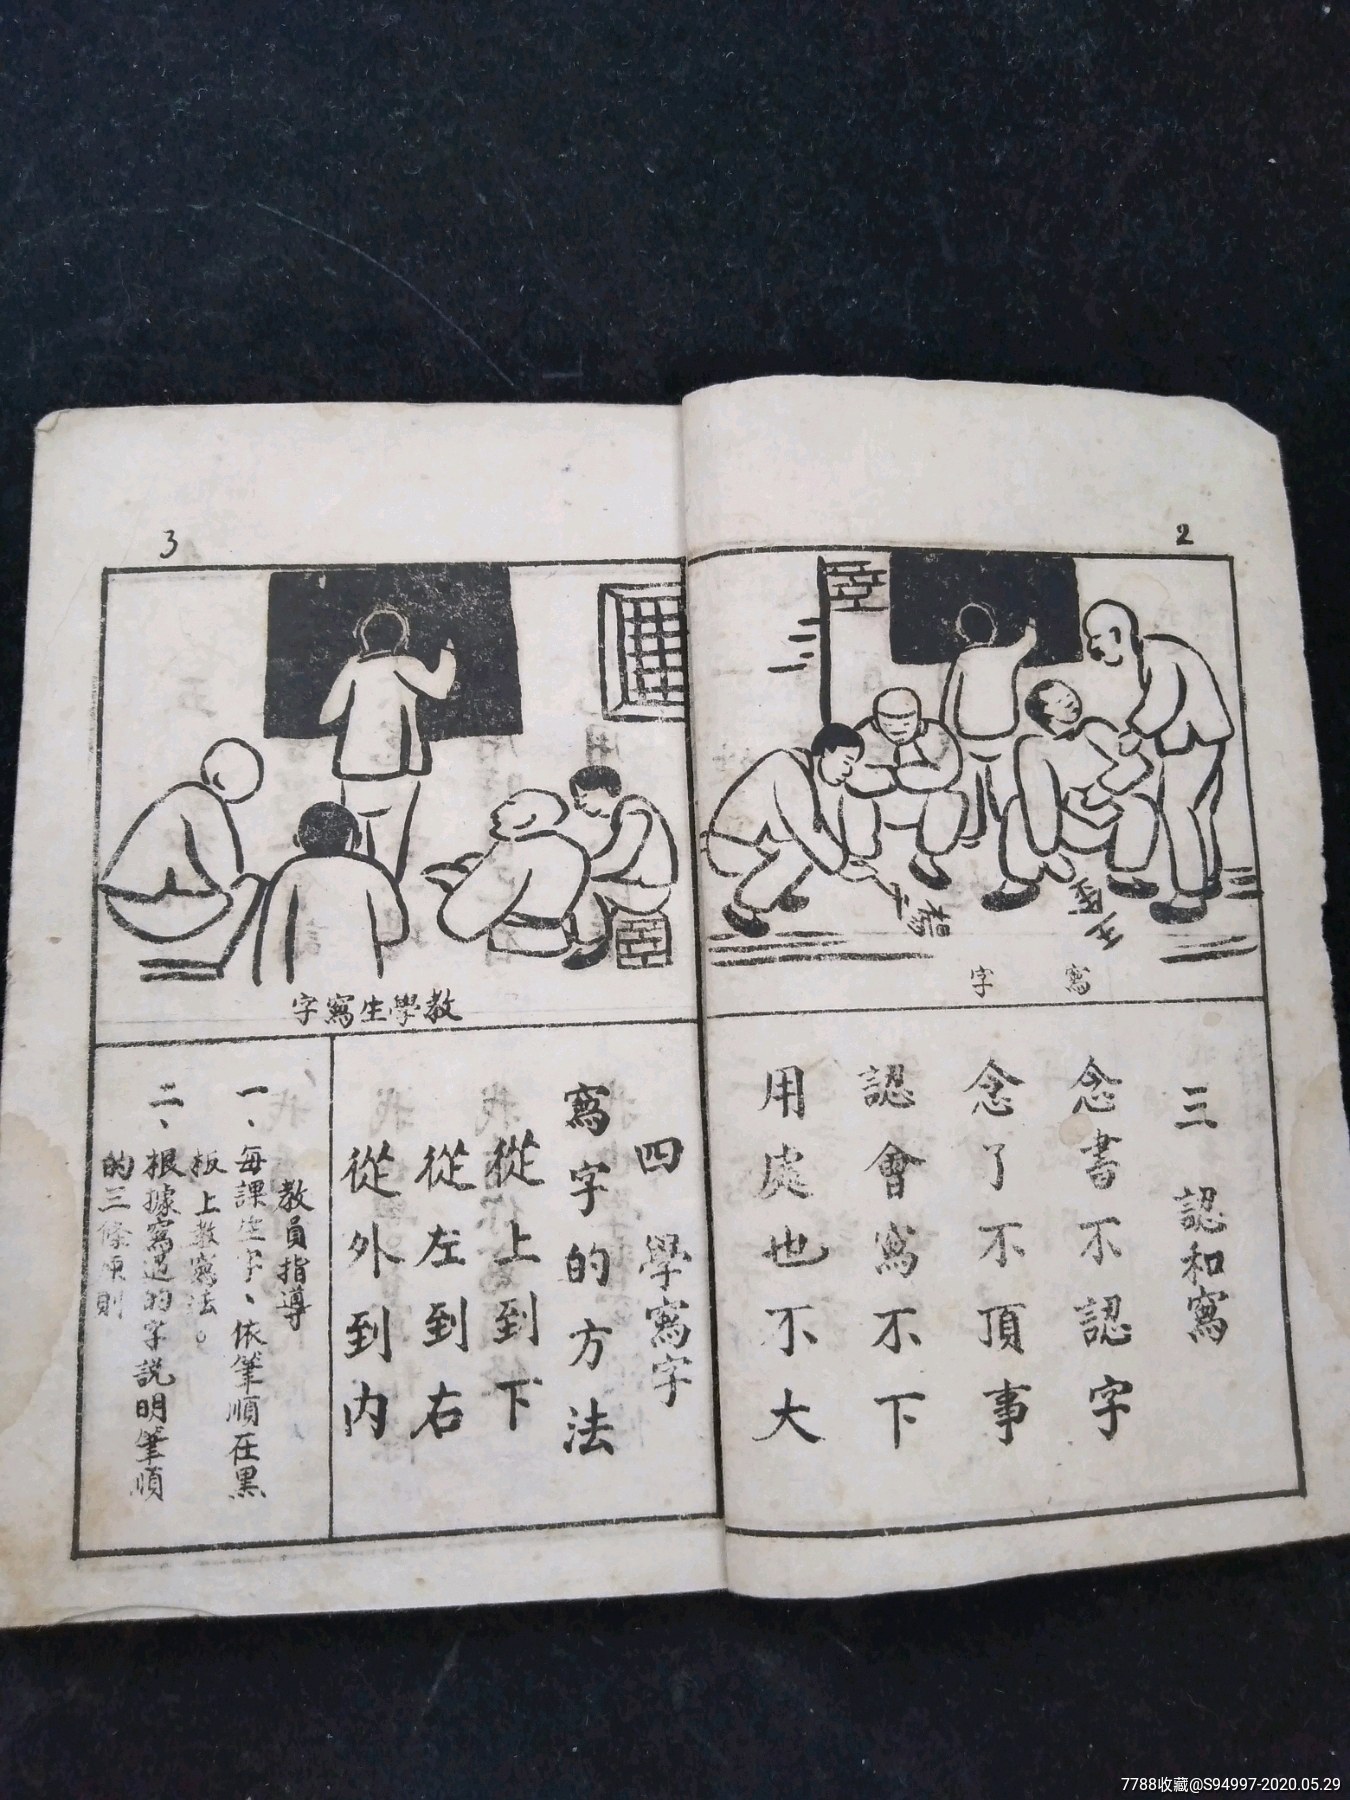 2
寫字
三 認和寫
念書不認字
念了不頂事
認會寫不下
用處也不大
3
教學生寫字
四 學寫字
寫字的方法
從上到下
從左到右
從外到内
教員指導
一、每課生字、依筆順在黑
板上教寫法。
二、根據寫過的字説明筆順
的三條原則
7788收藏@S94997-2020.05.29